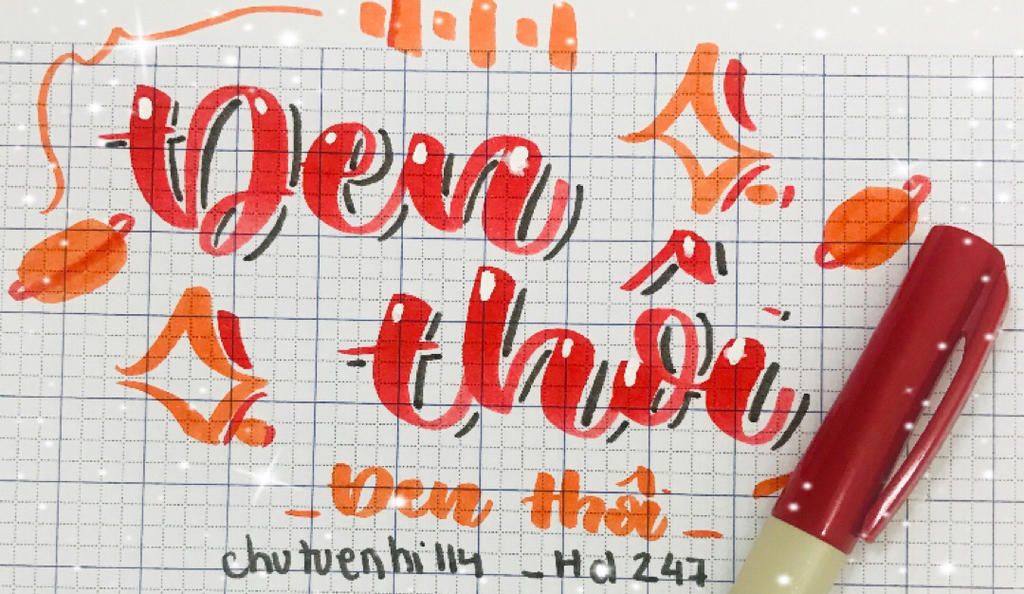 Đen
thôi
_ Đen thôi _
chutuenhi114 _ Hd 247